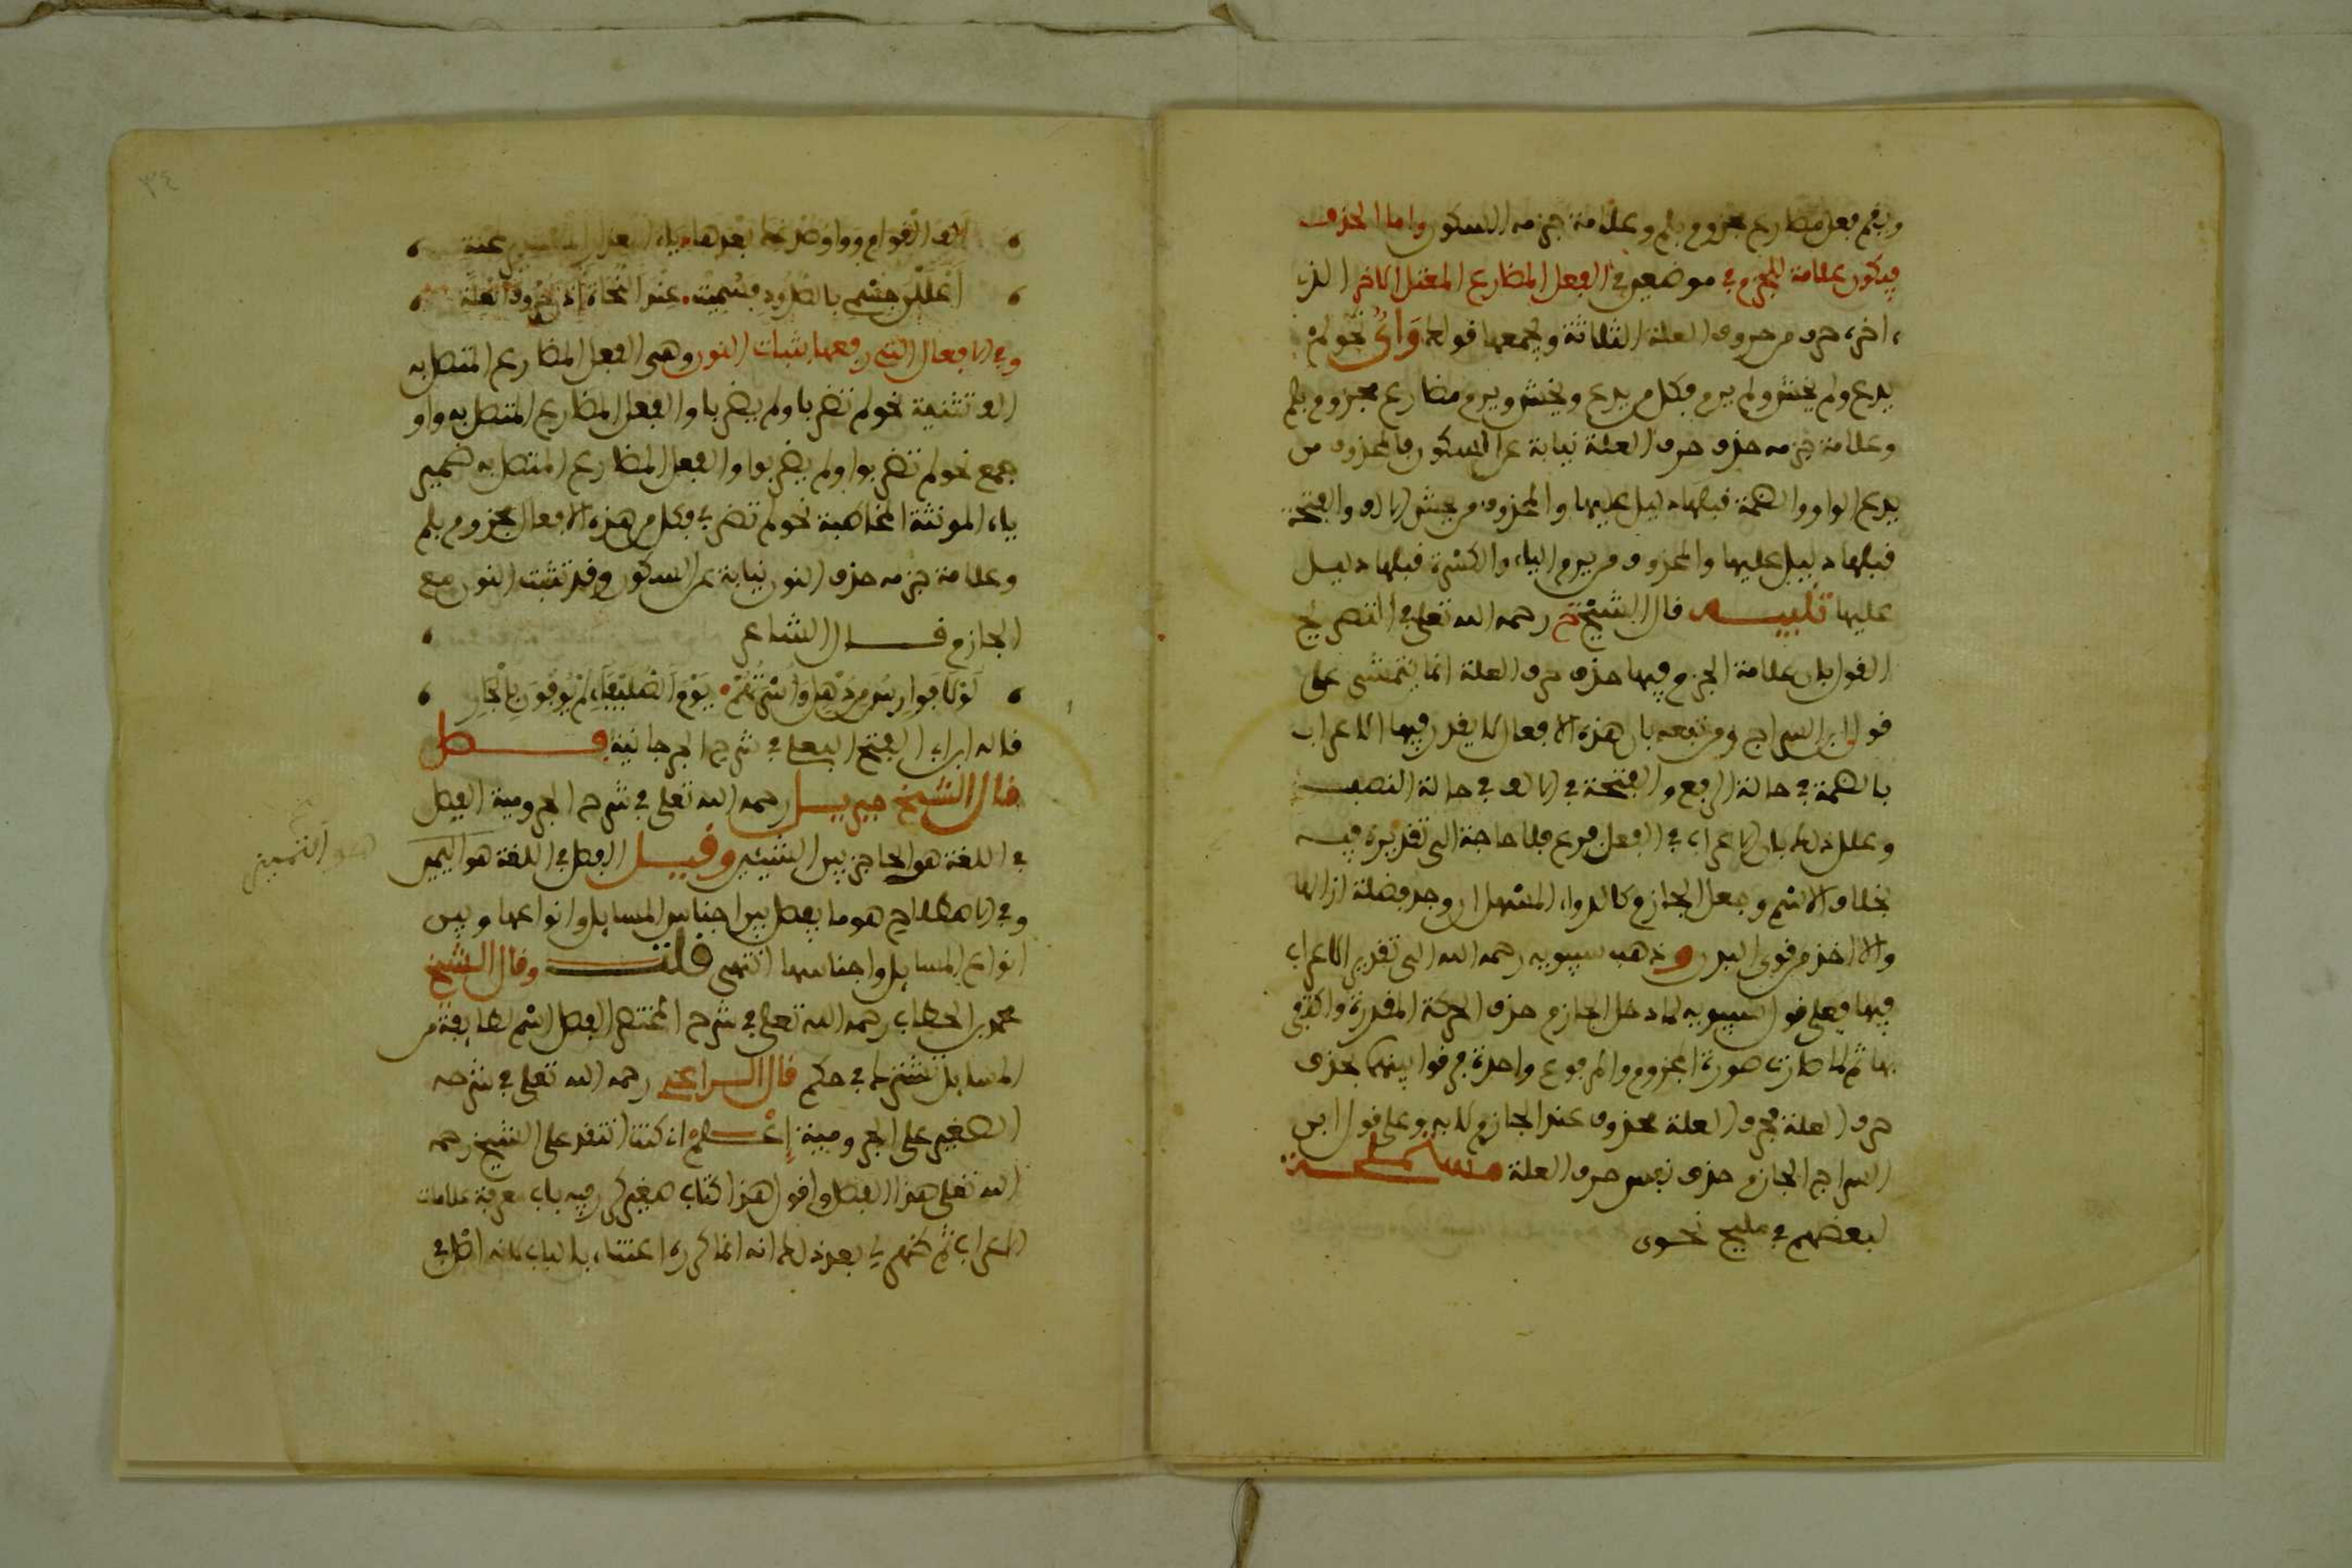 ويقم فعل مضارع مجزوم بلم وعلامة جزمه السكون واما الحذف
فيكون علامة للجزم في موضعين في الفعل المضارع المعتل الآخر الذي
آخره حرف من حروف العلة الثلاثة ويجمعها قولك وَاىٌ نحو لم
يدع ولم يخش ولم يرم فكل من يدع ويخش ويرم مضارع مجزوم بلم
وعلامة جزمه حذف حرف العلة نيابة عن السكون فالمحذوف من
يدع الواو والضمة قبلها دليل عليها والمحذوف من يخش الالف والفتحة
قبلها دليل عليها والمحذوف من يرم الياء والكسرة قبلها دليل
عليها تنبيه قال الشيخ خ رحمه الله تعلى في التصريح
القول بان علامة الجزم فيها حذف حرف العلة انما يتمشى على
قول ابن السراج ومن تبعه بان هذه الافعال لا يقدر فيها الاعراب
بالضمة في حالة الرفع والفتحة في الالف في حالة النصب
وعلل ذلك بان الاعراب في الفعل فرع فلا حاجة الى تقديره فيه
بخلاف الاسم وجعل الجازم كالدواء المسهل ان وجد فضلة ازالها
والا اخذ من قوى البدن وذهب سيبويه رحمه الله الى تقدير الاعراب
فيها فعلى قول سيبويه لما دخل الجازم حذف الحركة المقدرة واكتفى
بها ثم لما صارت صورة المجزوم والمرفوع واحدة فرقوا بينهما بحذف
حرف العلة فحرف العلة محذوف عند الجازم لا به وعلى قول ابن
السراج الجازم حذف نفس حرف العلة مسئلة
لبعضهم في مليح نحوى
الف القوام وواو صدغ بعدها ياء
أعللن جسمي بالصدود فسميت عند النحاة إذن حروف العلة
وفي الافعال التى رفعها بثبات النون وهى الفعل المضارع المتصل به
الف تثنية نحو لم تضربا ولم يضربا والفعل المضارع المتصل به واو
جمع نحو لم تضربوا ولم يضربوا والفعل المضارع المتصل به ضمير
ياء المونثة المخاطبة نحو لم تضربي فكل من هذه الافعال مجزوم بلم
وعلامة جزمه حذف النون نيابة عن السكون وقد تثبت النون مع
الجازم قال الشاعر
لولا فوارس من ذهل وأسرتهم يوم الصليفاء لم يوفون بالجار
قاله ابن ابي الفتح البعلى في شرح الجرجانية فصل
قال الشيخ جبريل رحمه الله تعلى في شرح الجرومية الفصل
في اللغة هو الحاجز بين الشيئين وقيل الفصل في اللغة هو التمييز
وفي الاصطلاح هو ما يفصل بين اجناس المسايل وانواعها وبين
انواع المسايل واجناسها انتهى قلت وقال الشيخ
محمد الحطاب رحمه الله تعلى في شرح المختصر الفصل اسم لطايفة من
المسايل تشترك في حكم قال الراعى رحمه الله تعلى في شرحه
الصغير على الجرومية إعلم ان كنت انتقد على الشيخ رحمه
الله تعلى هذا الفصل واقول هذا كتاب صغير كرر فيه باب معرفة علامات
الاعراب ثم ظهر لي بعد ذلك انه انما كرره اعتناء بالباب لانه اصل في
هو التمييز
٣٤